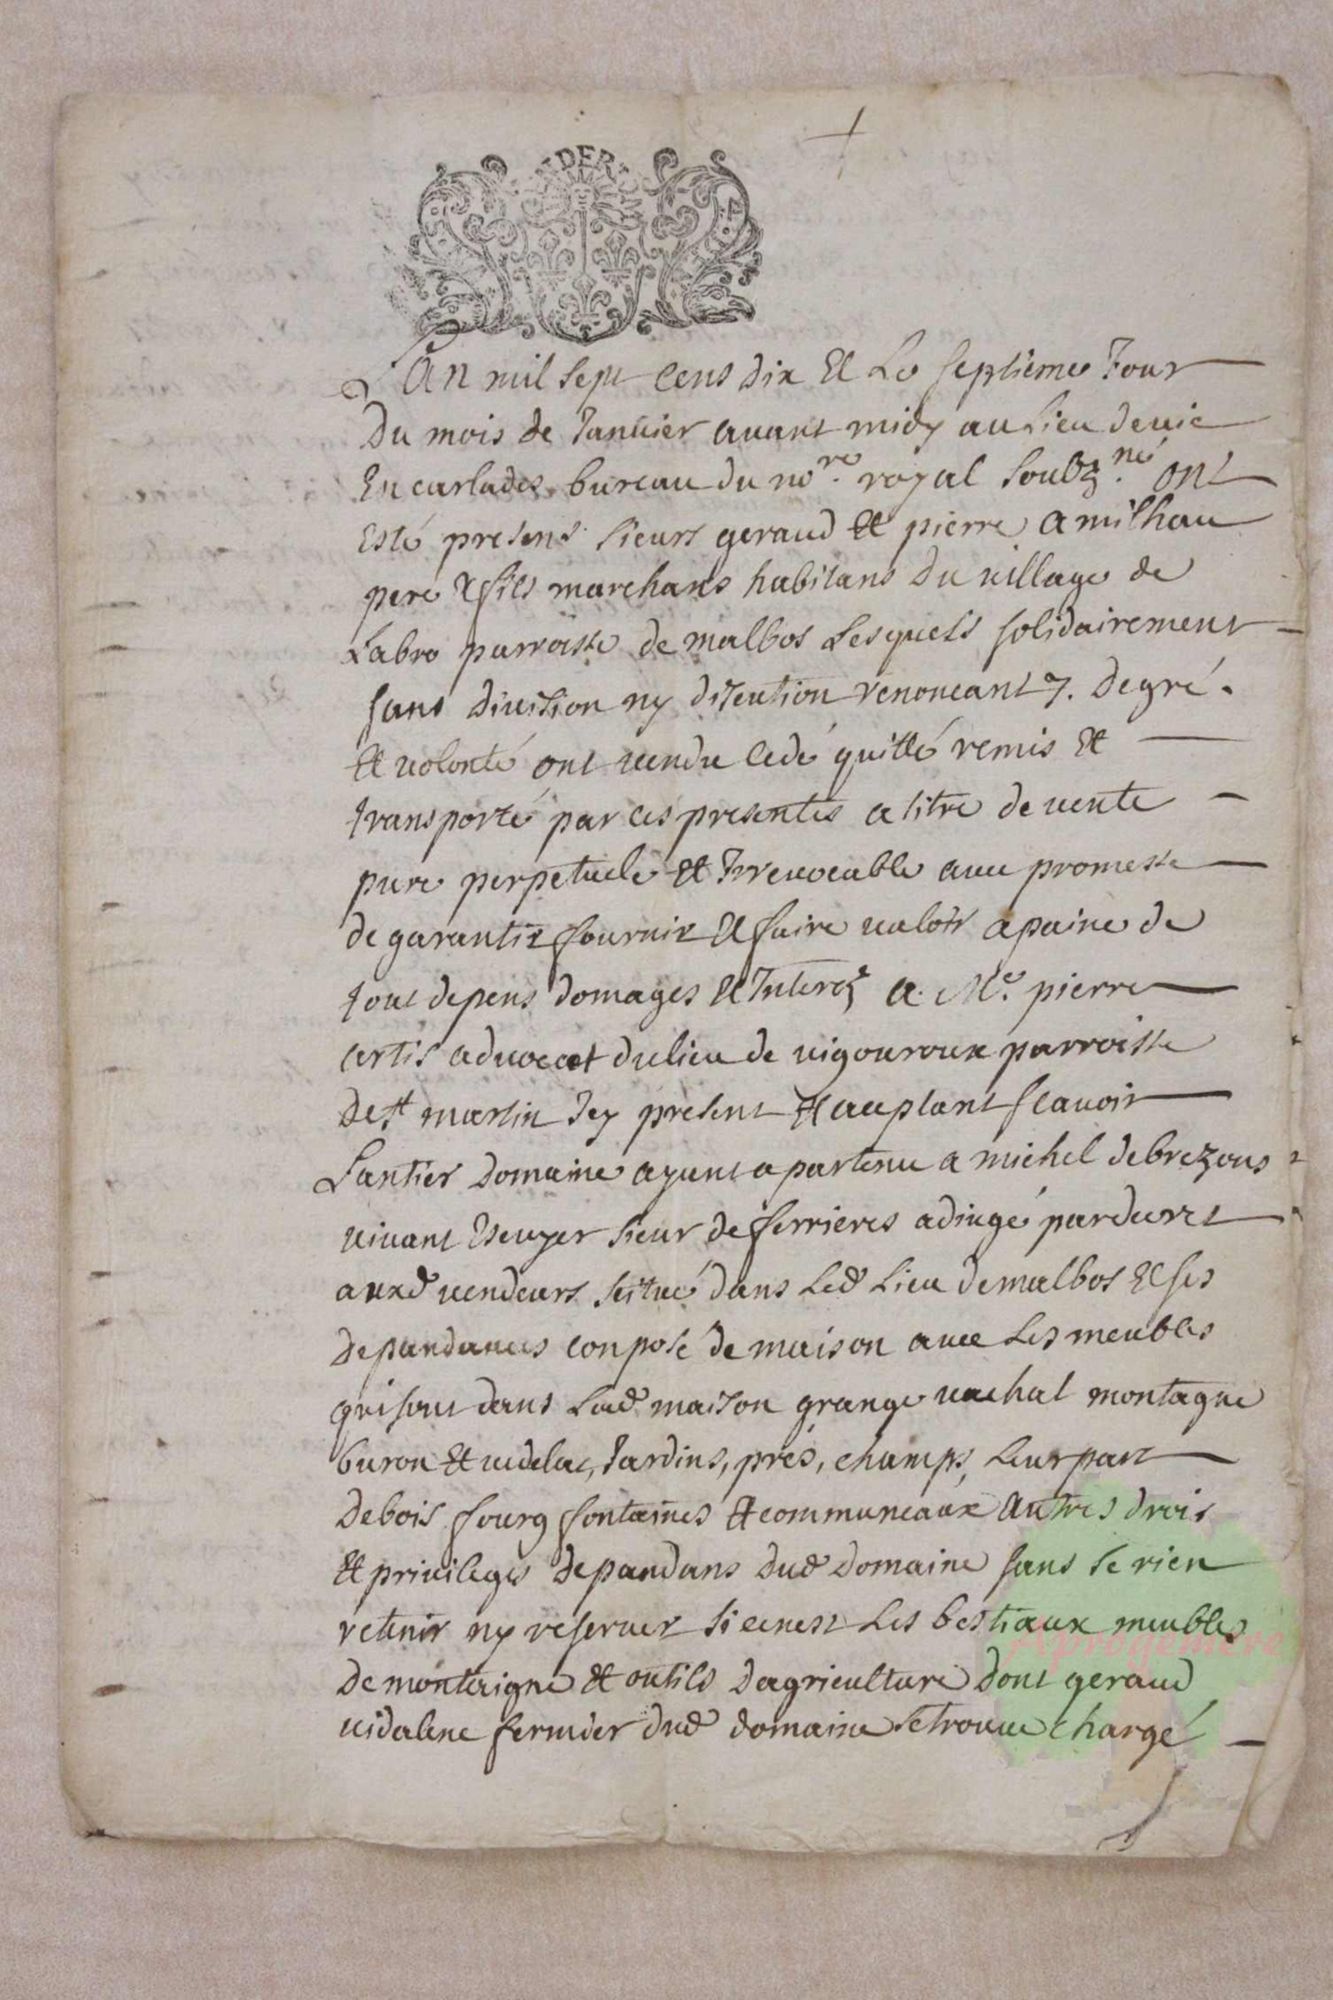 L'An mil sept cens dix Et Le septieme Jour
Du mois de Januier auant midy au Lieu de uic
En carlades bureau du no.re royal soubz.né ont
esté presens sieurs geraud Et pierre amilhau
pere & fils marchans habitans Du uillage de
Labro parroisse de malbos Lesquels solidairement
sans diuision ny discution renoncant 7. De gré.
Et uolonté ont uendu cedé quitté remis Et
transporté par ces presentes a titre de uente
pure perpetuele Et Irreuocable auec promesse
de garantir fournir Et faire ualoir a paine de
tout depens domages Et Interez a Me. pierre
artis aduocat du lieu de uigouroux parroisse
de st martin Icy present Et acceptant scauoir
Lantier Domaine ayant apartenu a michel debrezons
uiuant Escuyer sieur de ferrieres adiugé par decret
auxd uendeurs scitué dans Led Lieu de malbos Et ses
dependances conposé de maison auec Les meubles
qui sont dans Lad maison grange uachal montagne
buron Et uedelat, Jardins, prés, champs, Leur part
de bois fourq fontaines Et communeaux autres drois
Et priuileges dependans dud domaine sans se rien
retenir ny reseruer si cenest Les bestiaux meubles
de montaigne Et outils dagriculture Dont geraud
uidalene fermier dud domaine se trouue chargé
Aprogemere